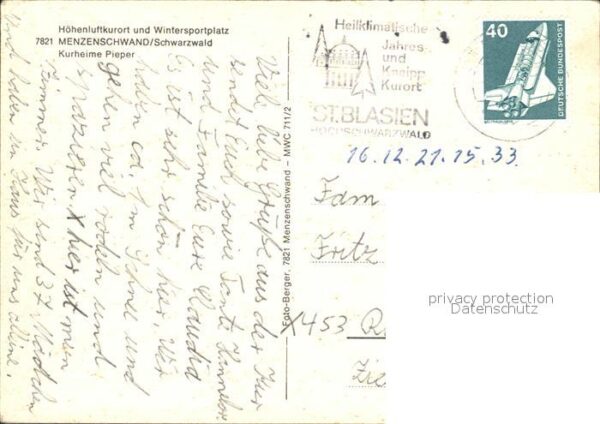 Höhenluftkurort und Wintersportplatz
7821 MENZENSCHWAND/Schwarzwald
Kurheime Pieper
Viele liebe Grüße aus der Kur
sendet Euch sowie Tante
und Familie Eure Claudia
Es ist sehr schön hier. Wir
haben ca. 1m Schnee und
gehen viel rodeln und
spazieren. X hier ist mein
Zimmer. Wir sind 37 Mädchen
und haben ein Haus für uns alleine.
Foto-Berger, 7821 Menzenschwand – MWC 711/2
Heilklimatische
Jahres-
und
Kneipp
Kurort
ST. BLASIEN
HOCHSCHWARZWALD
40
DEUTSCHE BUNDESPOST
16.12.21.15.33
Fam
Fritz
X453 R
privacy protection
Datenschutz